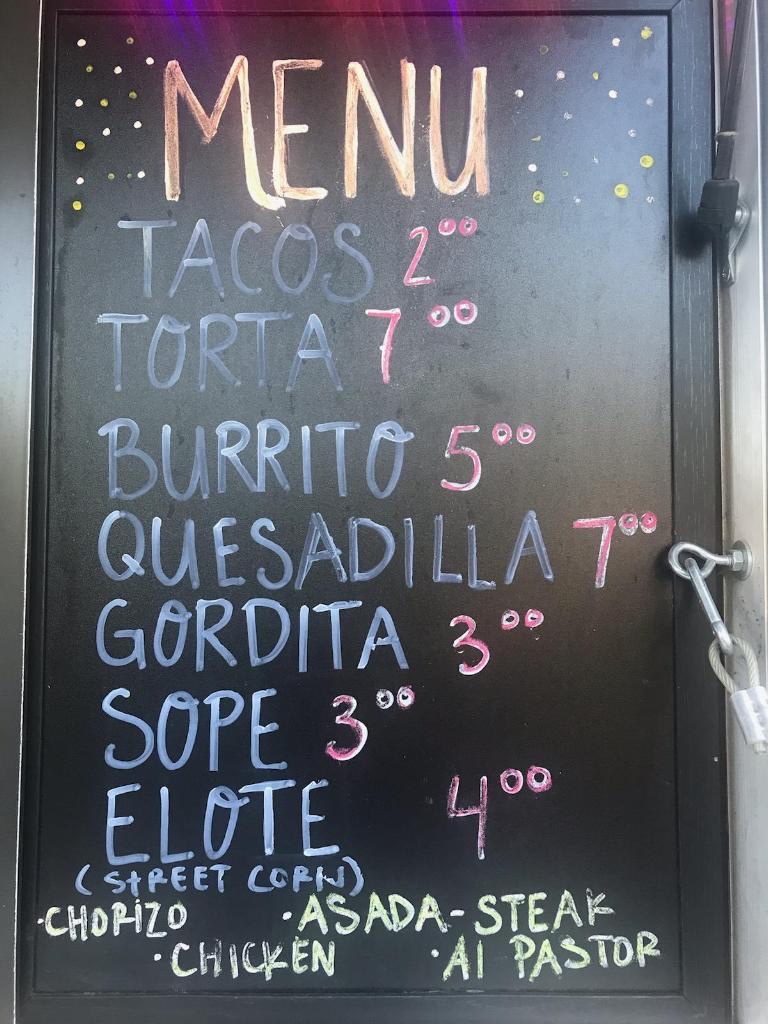 MENU
TACOS 2⁰⁰
TORTA 7⁰⁰
BURRITO 5⁰⁰
QUESADILLA 7⁰⁰
GORDITA 3⁰⁰
SOPE 3⁰⁰
ELOTE 4⁰⁰
(STREET CORN)
·CHORIZO ·ASADA-STEAK
·CHICKEN ·Al PASTOR